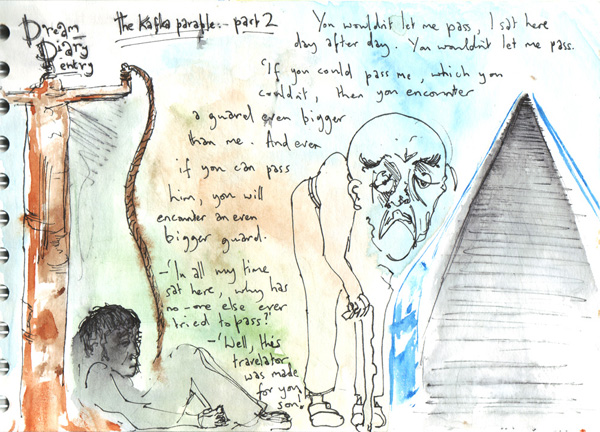 Dream
Diary
entry
The Kafka parable:- part 2
You wouldn't let me pass, I sat here
day after day. You wouldn't let me pass.
'If you could pass me, which you
couldn't, then you encounter
a guard even bigger
than me. And even
if you can pass
him, you will
encounter an even
bigger guard.
-'In all my time
sat here, why has
no-one else ever
tried to pass?'
-'Well, this
travelator
was made
for you
son.'